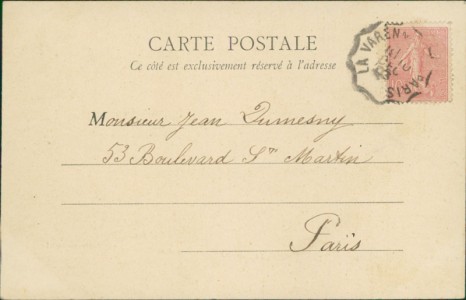 CARTE POSTALE
Ce côté est exclusivement réservé à l'adresse
LA VARENN
PARIS
Monsieur Jean Dumesny
53 Boulevard Sn Martin
Paris